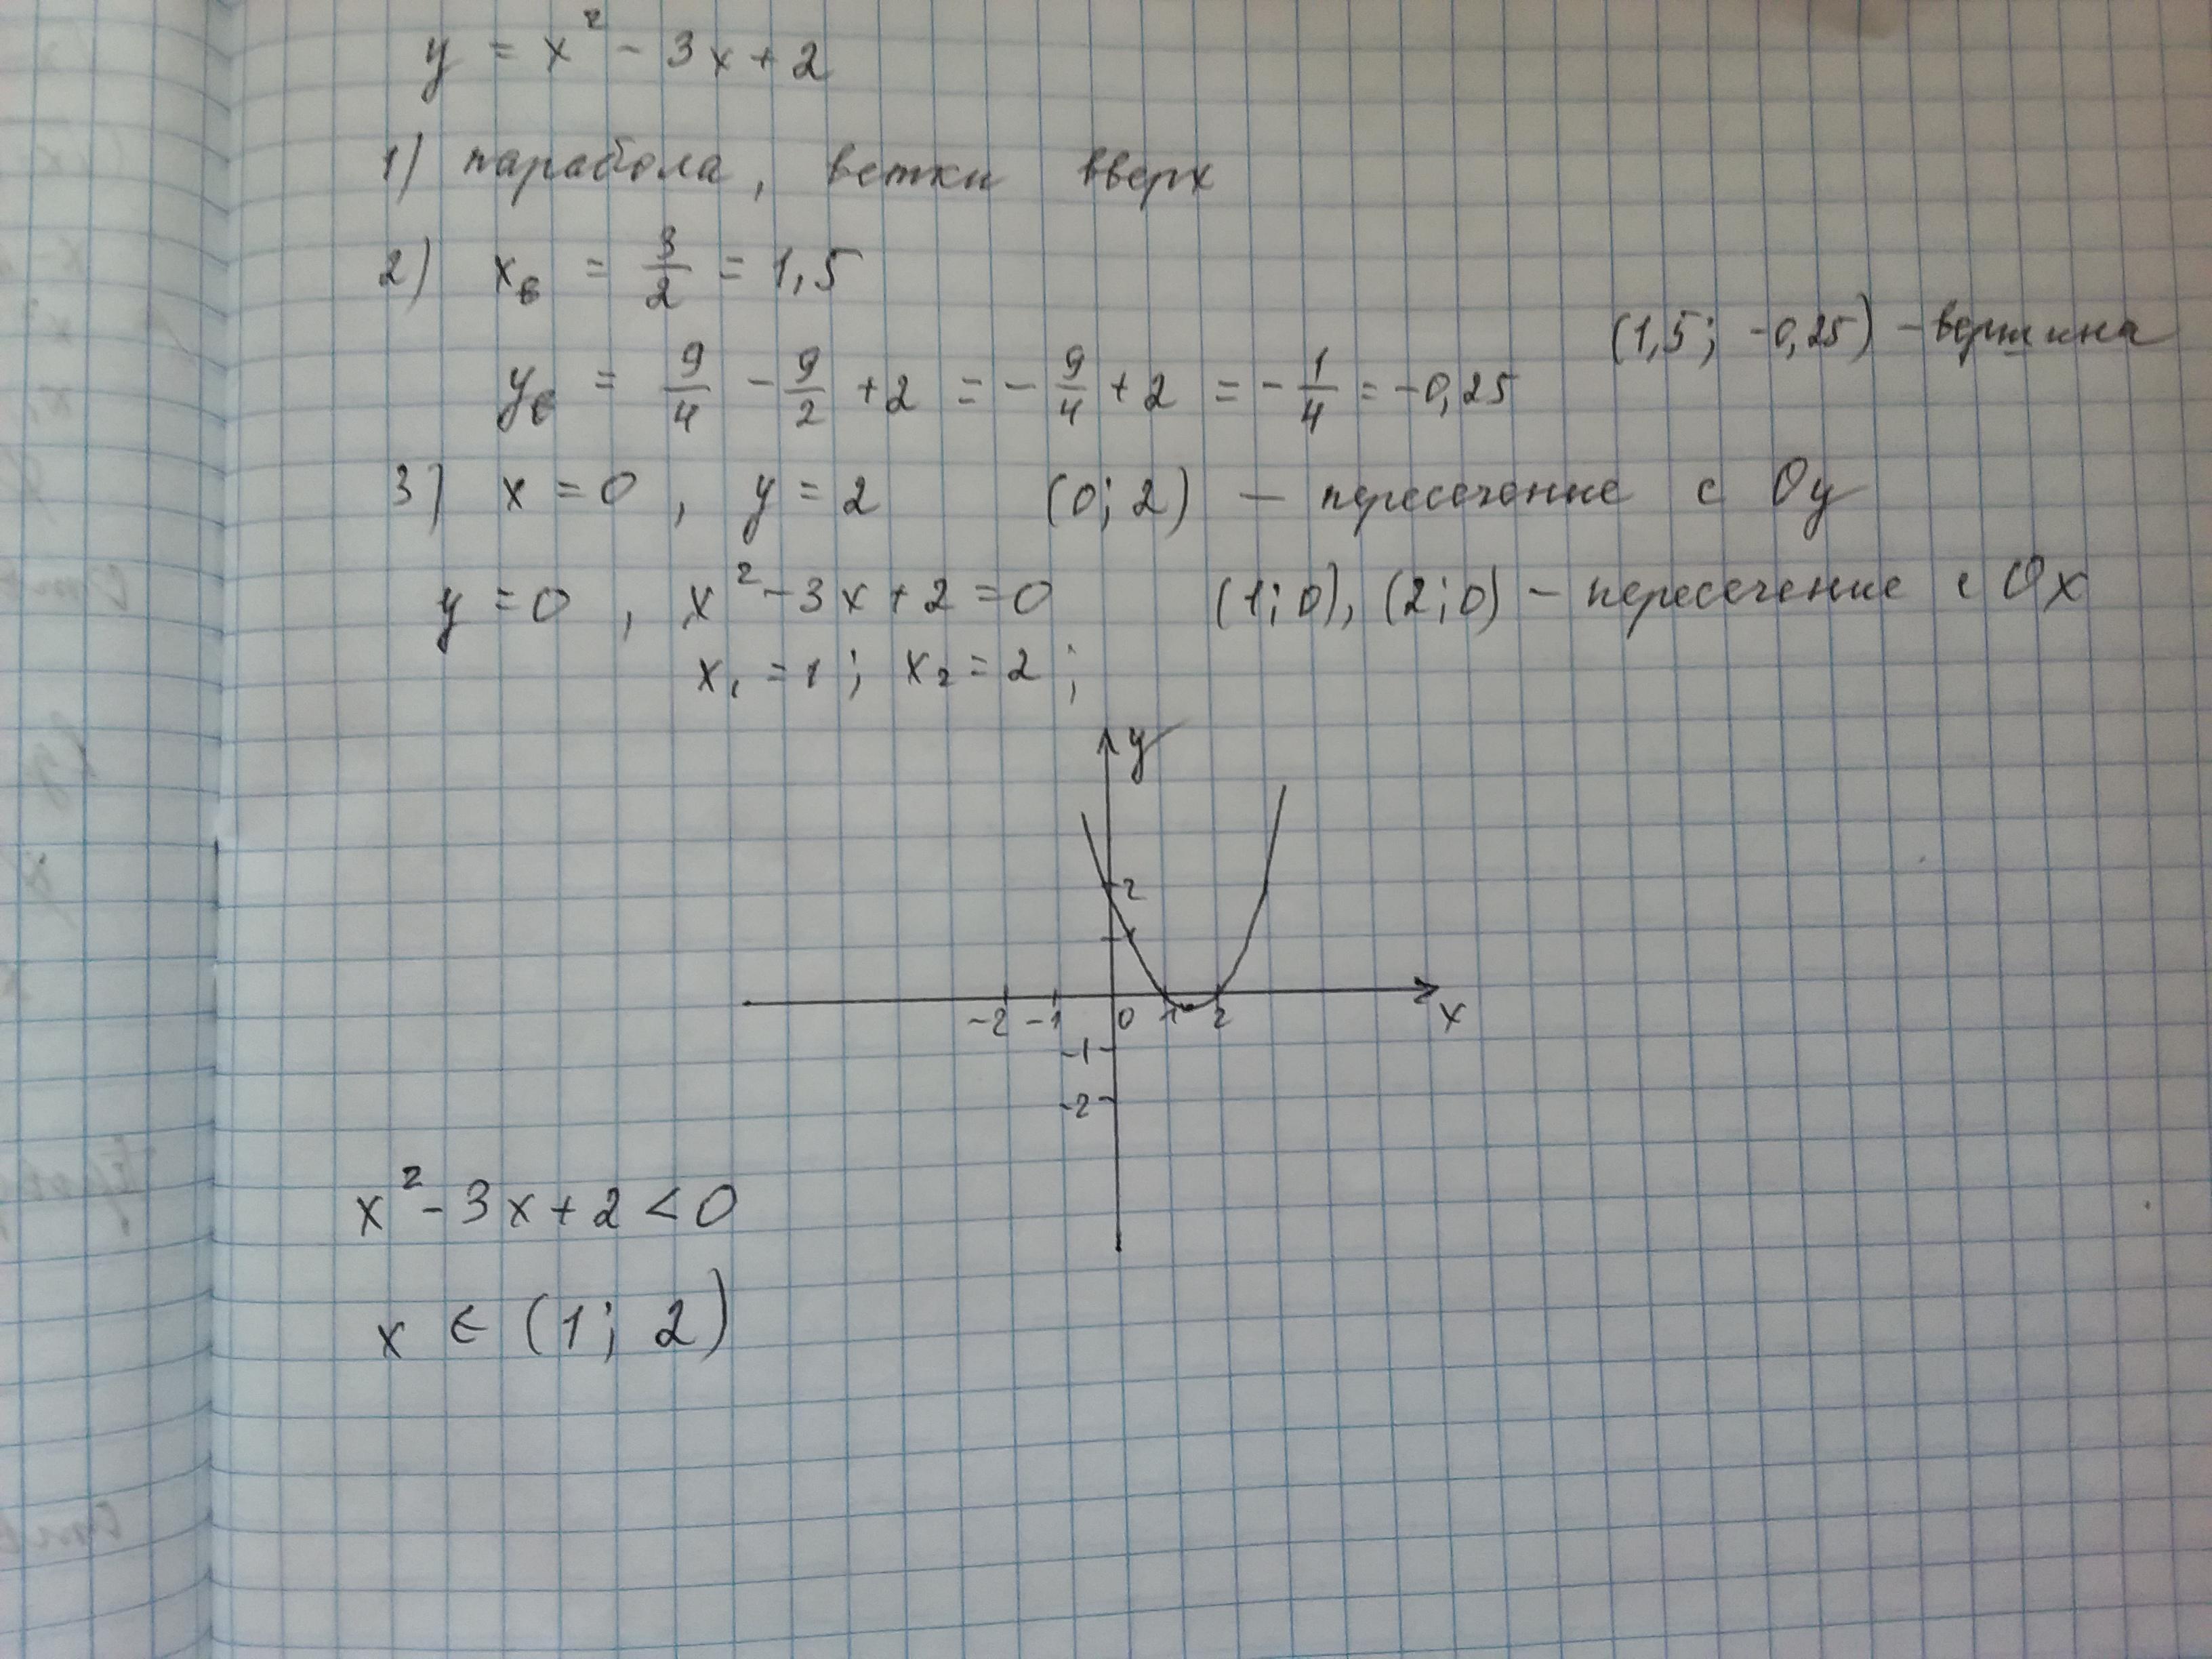 y = x² - 3x + 2
1) парабола, ветки вверх
2) xв = 3/2 = 1,5
(1,5; -0,25) - вершина
yв = 9/4 - 9/2 + 2 = - 9/4 + 2 = - 1/4 = -0,25
3) x = 0, y = 2 (0; 2) — пересечение с Oy
y = 0, x² - 3x + 2 = 0 (1; 0), (2; 0) - пересечение с Ox
x₁ = 1; x₂ = 2;
y
2
1
-2 -1 0 1 2 x
-1
-2
x² - 3x + 2 < 0
x ∈ (1; 2)